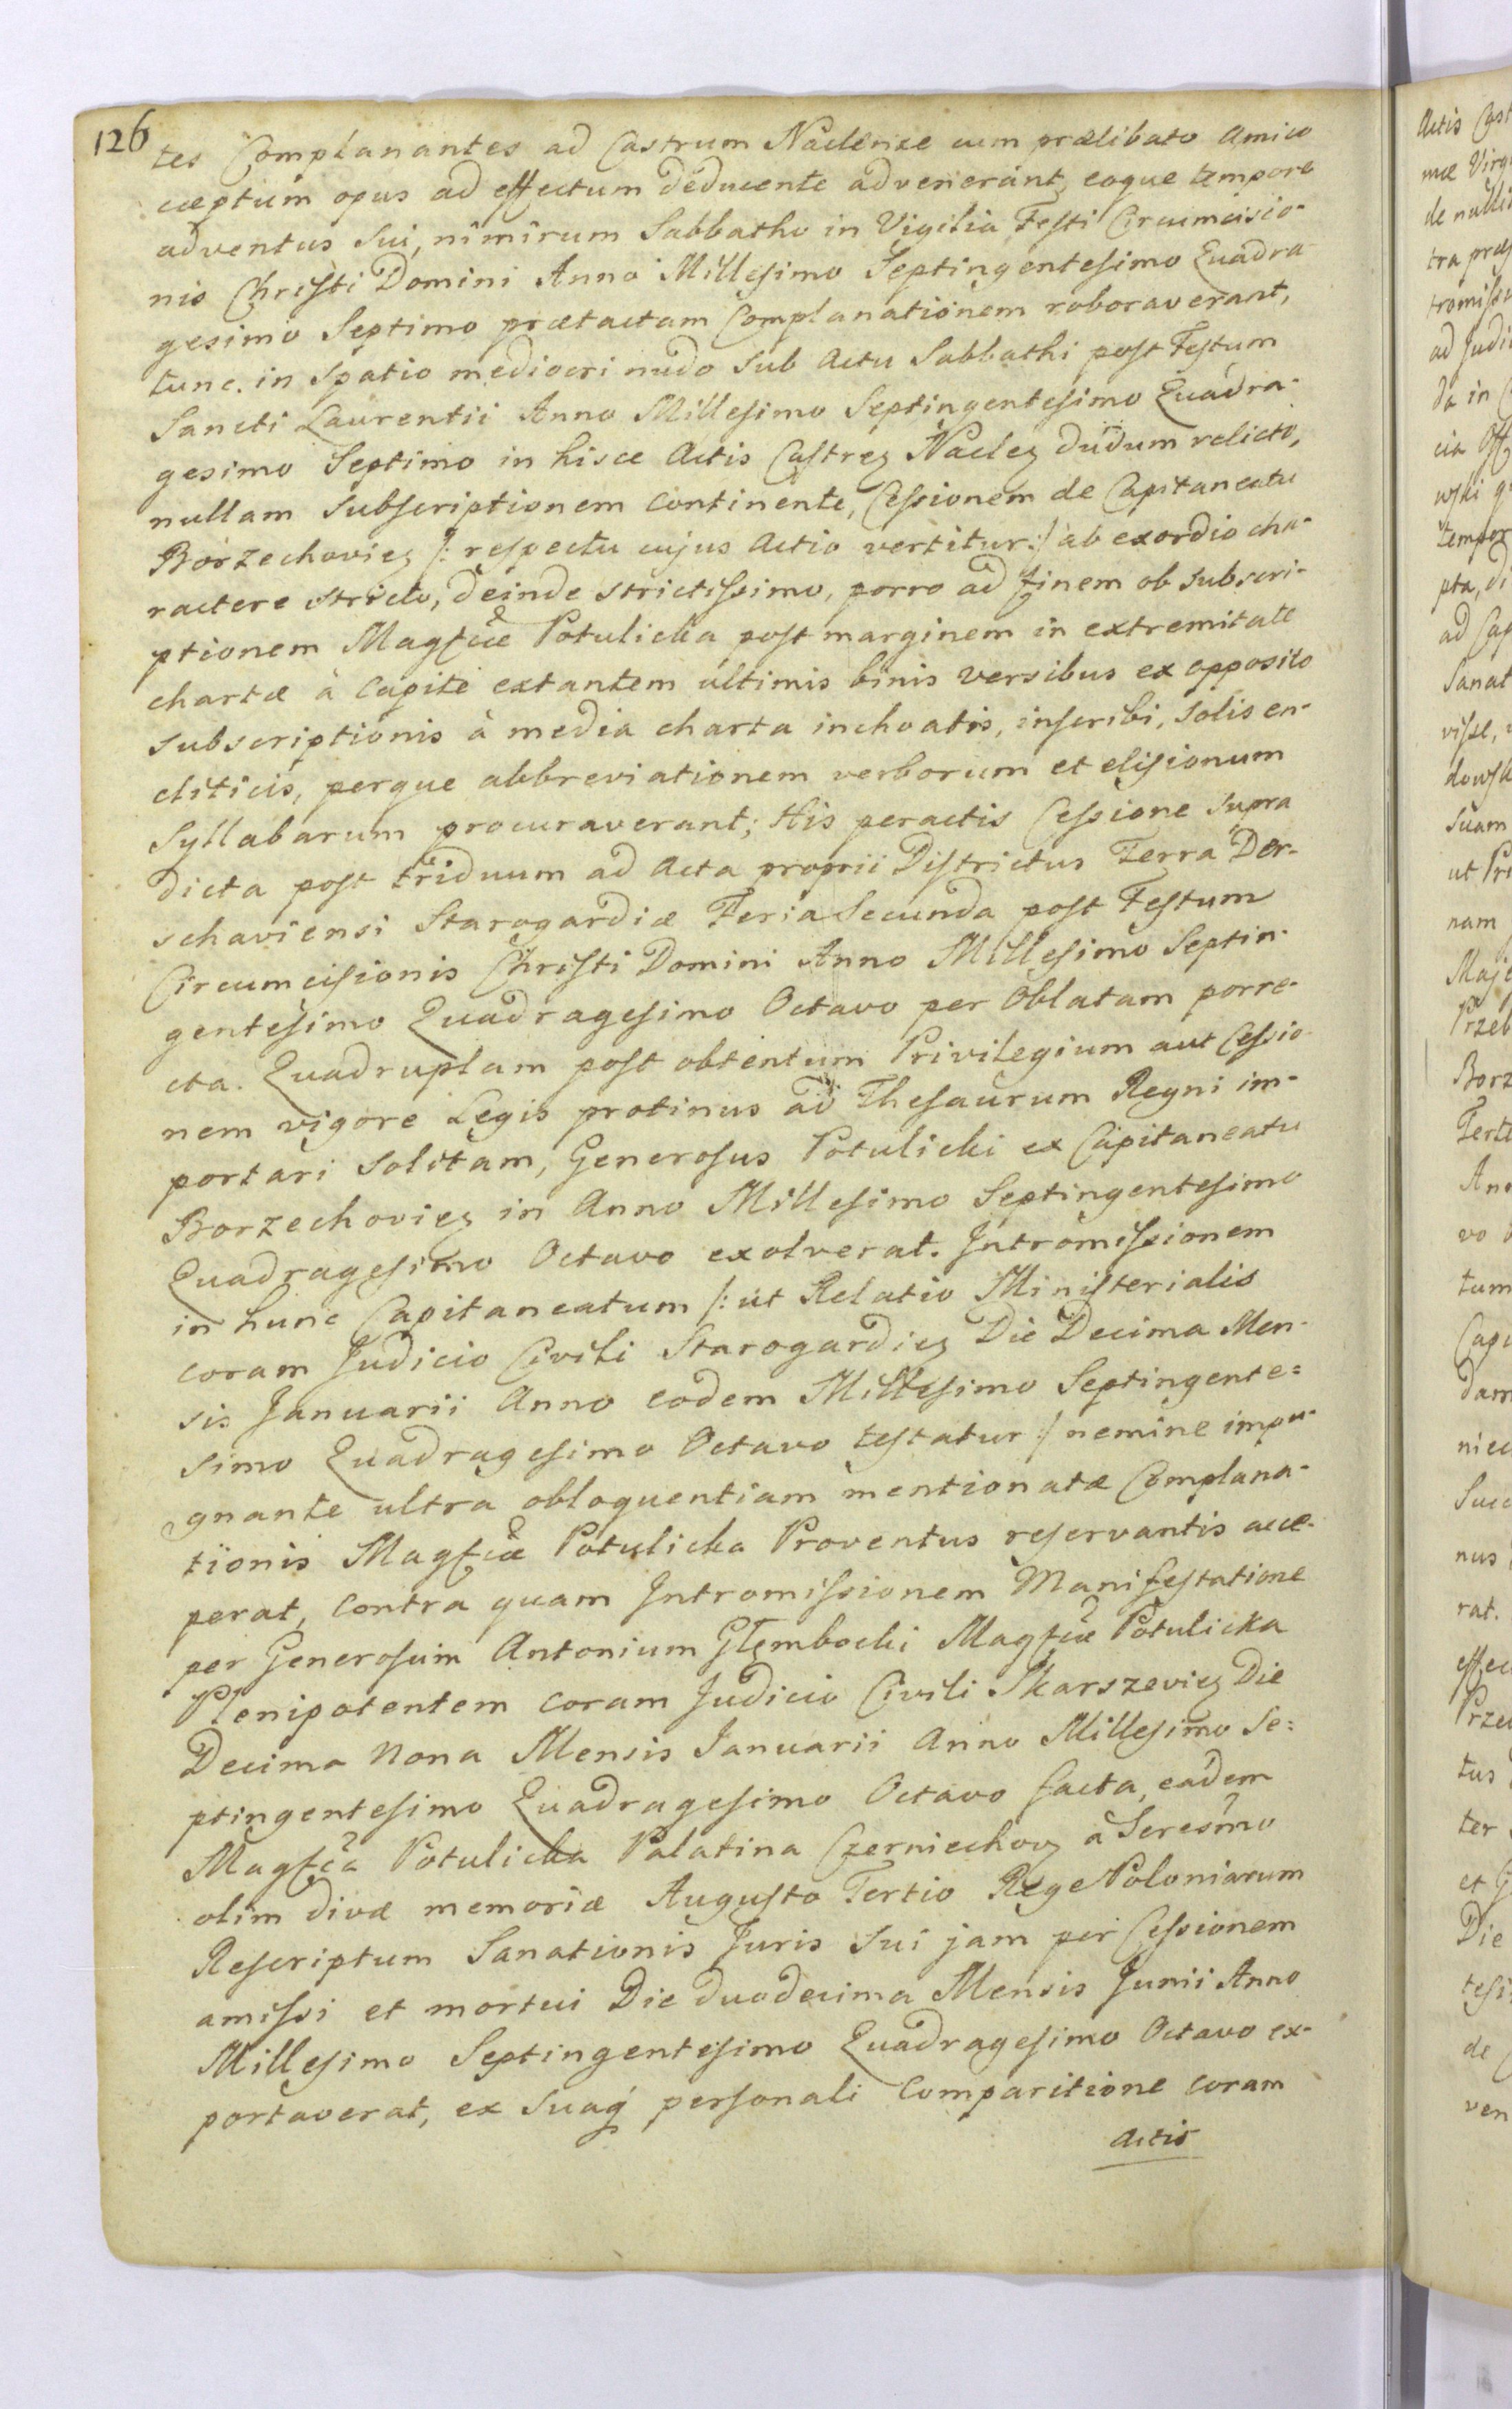 126
tes Complanantes ad Castrum Naclense cum prælibato amico
cæptum opus ad effectum deducente advenerant, eoque tempore
adventus sui, nimirum Sabbatho in Vigilia Festi Circumcisio-
nis Christi Domini Anno Millesimo Septingentesimo Quadra-
gesimo Septimo prætactam Complanationem roboraverant,
tunc. in spatio mediocri nudo sub Actu Sabbathi post Festum
Sancti Laurentii Anno Millesimo Septingentesimo Quadra-
gesimo Septimo in hisce Actis Castreᵹ Nacleᵹ dudum relicto,
nullam subscriptionem continente, Cessionem de Capitaneatu
Borzechovieᵹ /: respectu cujus Actio vertitur :/ ab exordio cha-
ractere stricto, deinde strictissimo, porro ad finem ob subscri-
ptionem Magfcæ Potulicka post marginem in extremitate
chartæ à capite extantem ultimis binis versibus ex opposito
subscriptionis à media charta inchoatis, inscribi, solis en-
cliticis, perque abbreviationem verborum et elisionum
Syllabarum procuraverant; His peractis Cessione supra
dicta post triduum ad Acta proprii Districtus Terra Der-
schaviensi Starogardiæ Feria Secunda post Festum
Circumcisionis Christi Domini Anno Millesimo Septin-
gentesimo Quadragesimo Octavo per Oblatam porre-
cta. Quadruplam post obtentum Privilegium aut Cessio-
nem vigore Legis protinus ad Thesaurum Regni im-
portari solitam, Generosus Potulicki ex Capitaneatu
Borzechovieᵹ in Anno Millesimo Septingentesimo
Quadragesimo Octavo exolverat. Intromissionem
in hunc Capitaneatum /: ut Relatio Ministerialis
coram Judicio Civili Starogardieᵹ Die Decima Men-
sis Januarii Anno eodem Millesimo Septingente=
simo Quadragesimo Octavo testatur :/ nemine impu-
gnante ultra obloquentiam mentionatæ Complana-
tionis Magfcæ Potulicka Proventus reservantis acce-
perat, contra quam Intromissionem Manifestatione
per Generosum Antonium Głembocki Magfcæ Potulicka
Plenipotentem coram Judicio Civili Skarszevieᵹ Die
Decima Nona Mensis Januarii Anno Millesimo Se=
ptingentesimo Quadragesimo Octavo facta, eadem
Magfca Potulicka Palatina Czerniechovᵹ a Seresmo
olim divæ memoriæ Augusto Tertio Rege Poloniarum
Rescriptum Sanationis Juris sui jam per Cessionem
amissi et mortui Die duodecima Mensis Junii Anno
Millesimo Septingentesimo Quadragesimo Octavo ex-
portaverat, ex suaq personali Comparitione coram
Actis
Actis Cast
mæ Virg
de nulli
tra præs
tromiss
ad Judi
da in
cia Off
wski
tempor
pta, di
ad Cap
Sanat
visse,
dowsk
suam
ut Pri
nam
Maje
Przeb
Borz
Terti
Ann
vo
tum
Capi
dam
niec
Succ
nus
rat.
effec
Prze
tus
ter
et G
Die
tesi
de
ven